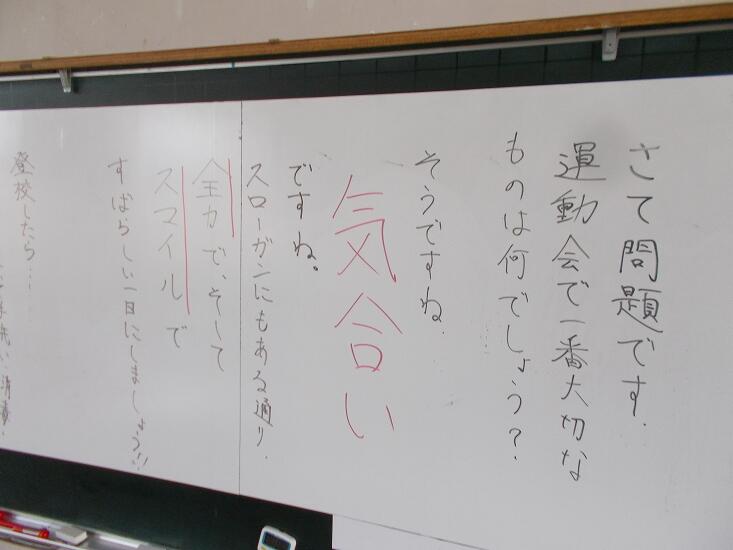 さて問題です.
運動会で一番大切な
ものは何でしょう?
そうですね.
気合い
ですね。
スローガンにもある通り.
全力で、そして
スマイルで
すばらしい一日にしましょう!!
登校したら....
手洗い消毒.